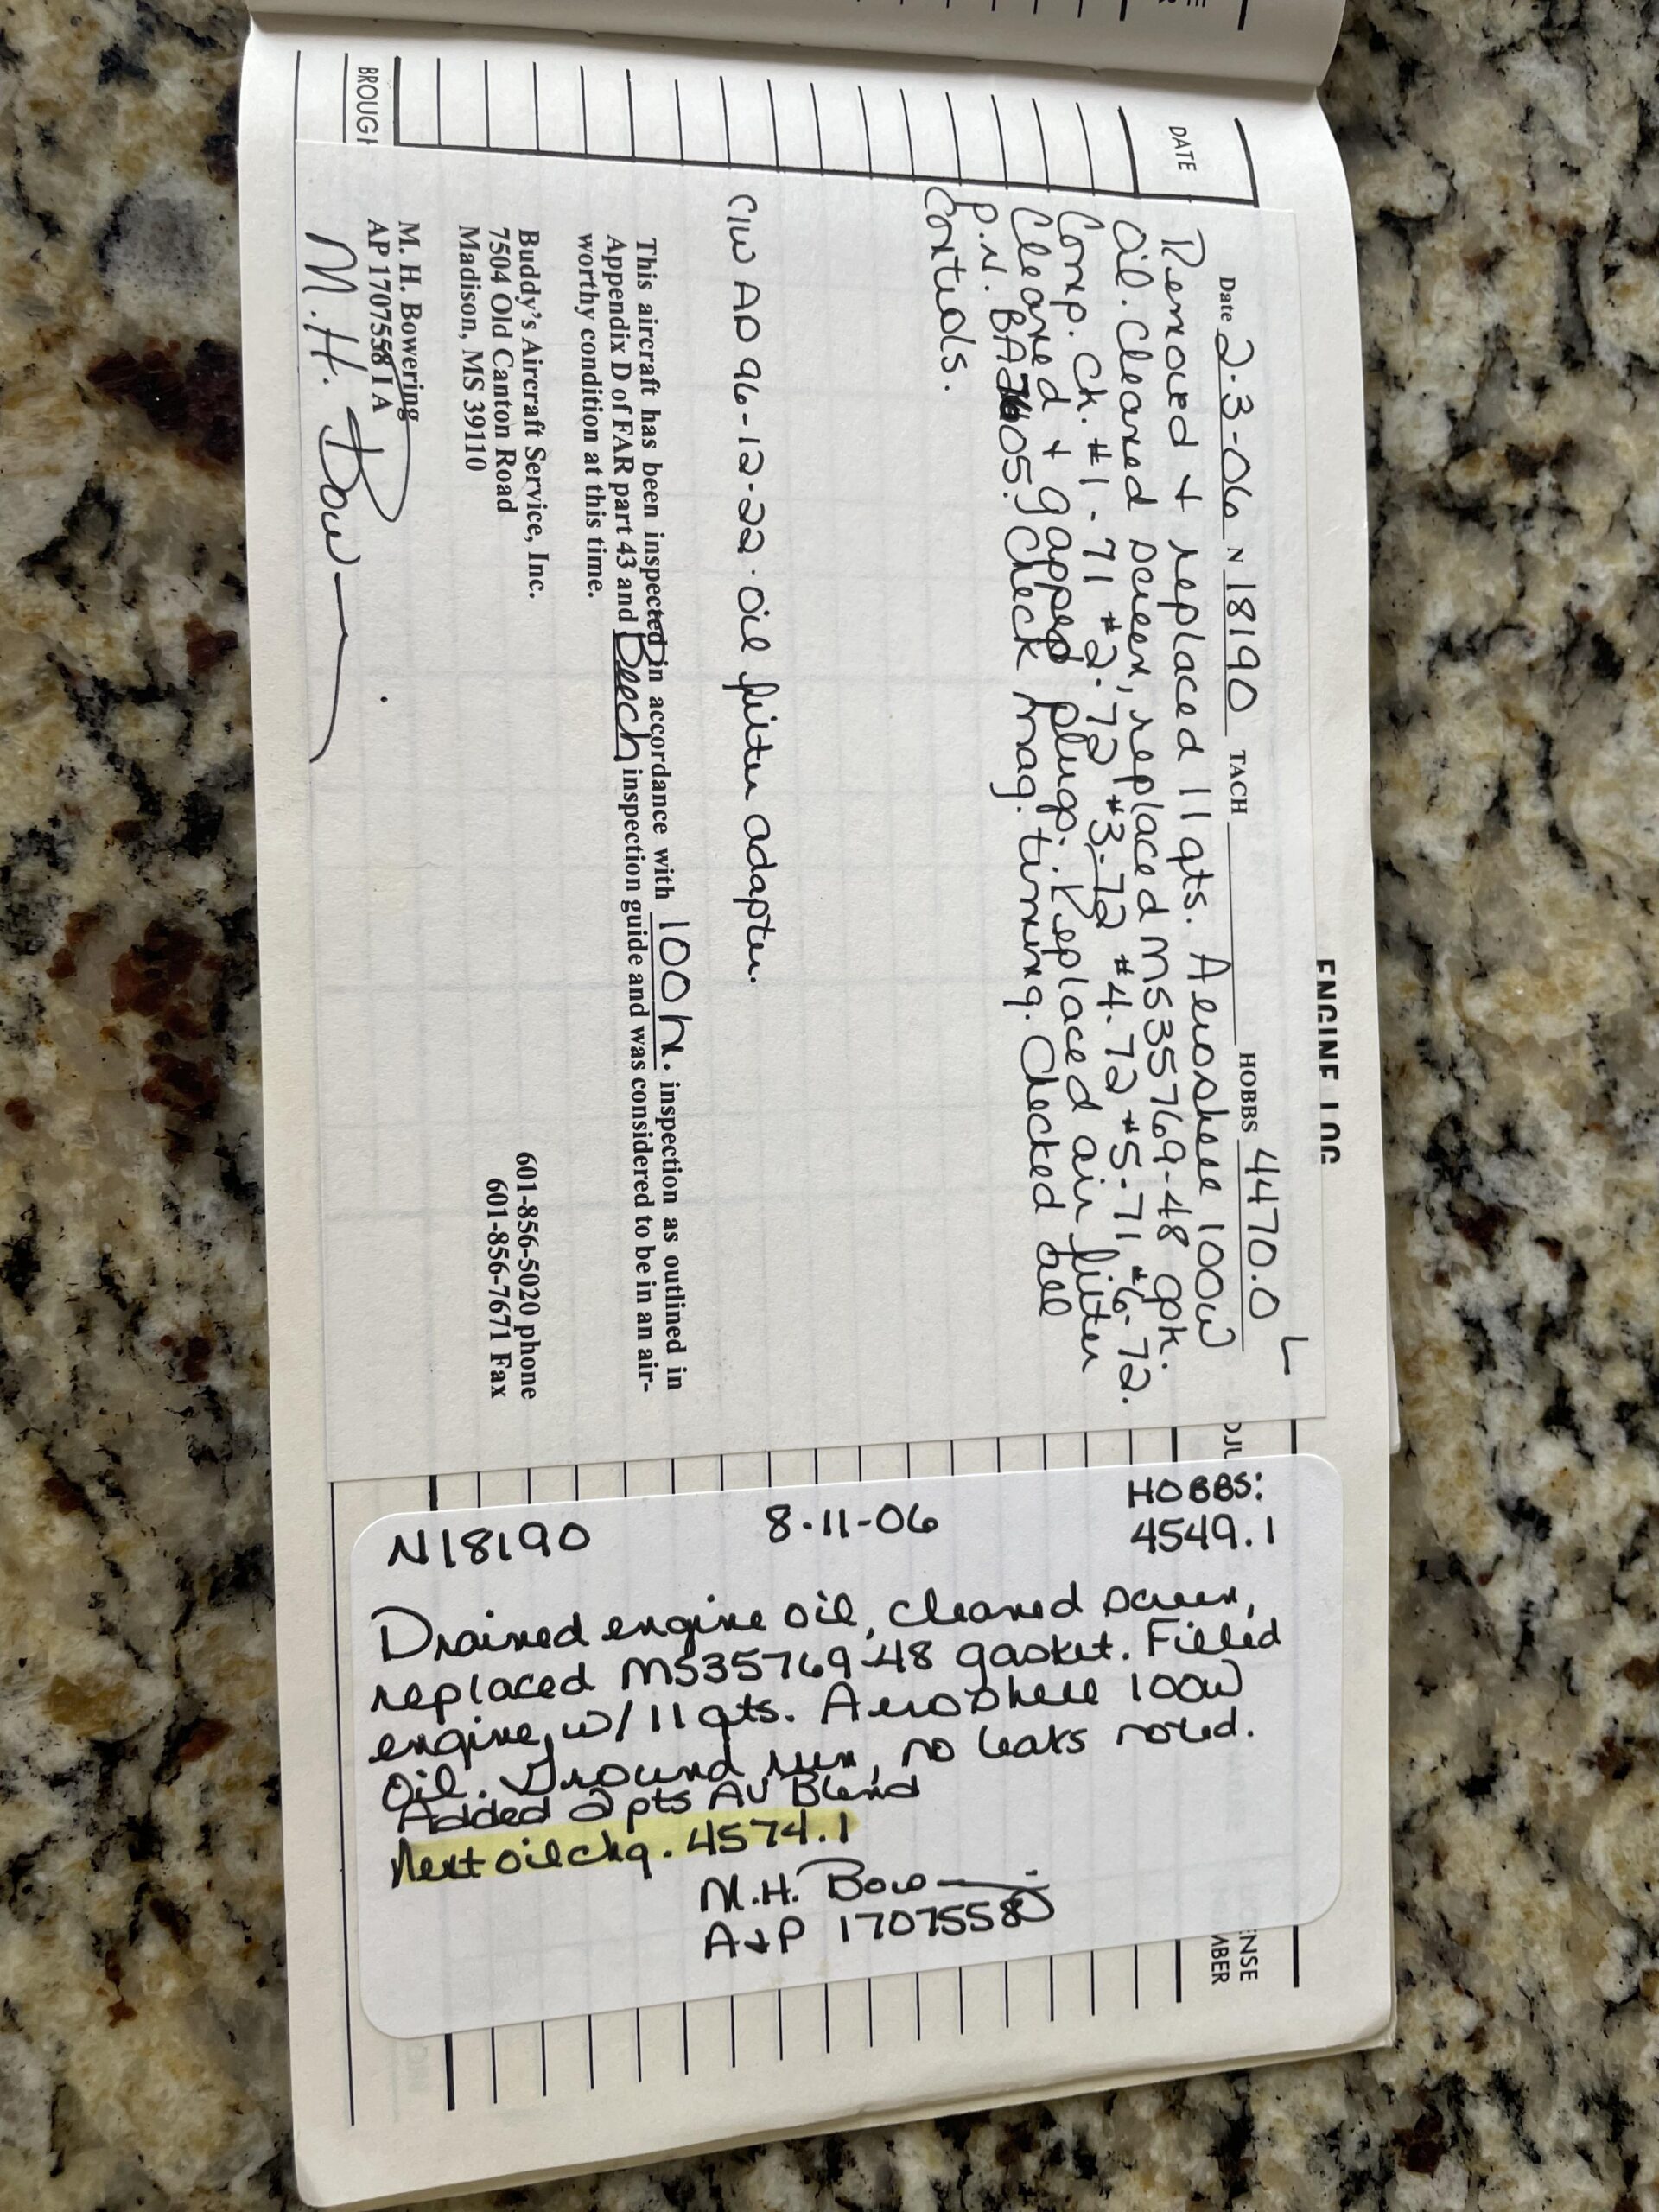 ENGINE LOG
DATE
Date 2-3-06 N 18190 TACH HOBBS 4470.0 L
Removed + replaced 11 qts. Aeroshell 100W
Oil. Cleaned screen, replaced MS35769-48 gpk.
Comp. Ck. #1-71 #2-72 #3-72 #4-72 #5-71 #6-72.
Cleaned + gapped plugs. Replaced air filter
P.N. Check mag. timing. Checked all
Controls.
C/W AD 96-12-22. Oil filter adapter.
This aircraft has been inspected in accordance with 100 hr. inspection as outlined in
Appendix D of FAR part 43 and Beech inspection guide and was considered to be in an air-
worthy condition at this time.
Buddy's Aircraft Service, Inc. 601-856-5020 phone
7504 Old Canton Road 601-856-7671 Fax
Madison, MS 39110
M. H. Bowering
AP 1707558 I A
M. H. Bow
BROUGH
N18190 8-11-06 HOBBS:
4549.1
Drained engine oil, cleaned screen,
replaced MS35769-48 gasket. Filled
engine w/ 11 qts. Aeroshell 100W
Oil. Ground run, no leaks noted.
Added 2 pts AV Blend
Next oil chg. 4574.1
M.H. Bow
A+P 1707558
ENSE
MBER